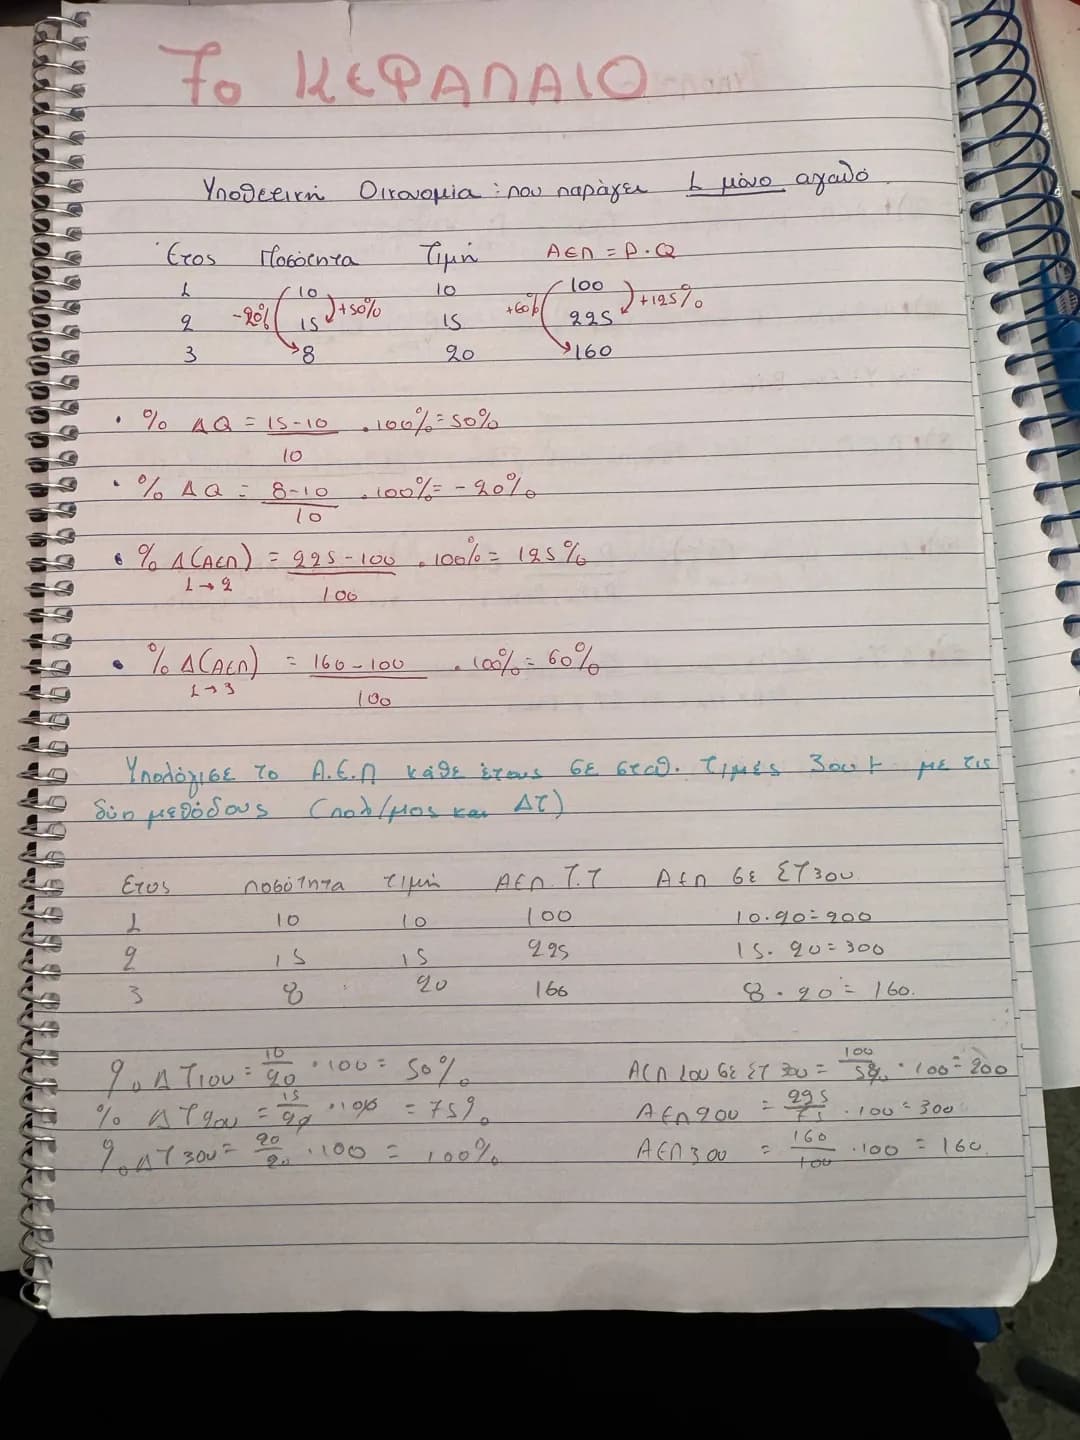 7ο ΚΕΦΑΛΑΙΟ
Υποθετική Οικονομία: που παράγει 1 μόνο αγαθό
Έτος Ποσότητα Τιμή ΑΕΠ = P·Q
1 10 10 100
-20% +50% +60% +125%
2 15 15 225
3 8 20 160
• % ΔQ = 15-10 . 100% = 50%
10
• % ΔQ = 8-10 . 100% = -20%
10
• % Δ(ΑΕΠ) = 225-100 . 100% = 125%
1→2 100
• % Δ(ΑΕΠ) = 160-100 . 100% = 60%
1→3 100
Υπολόγισε το Α.Ε.Π κάθε έτους σε σταθ. τιμές 3ου με τις
δύο μεθόδους (πολ/μος και ΔΤ)
Ετος ποσότητα τιμή ΑΕΠ Τ.Τ ΑΕΠ σε ΣΤ 3ου
1 10 10 100 10·20=200
2 15 15 225 15·20=300
3 8 20 160 8·20=160.
% ΔΤ1ου = 10/20 · 100 = 50% ΑΕΠ 1ου σε ΣΤ 3ου = 100/50 · 100 = 200
% ΔΤ2ου = 15/20 · 100 = 75% ΑΕΠ2ου = 225/75 · 100 = 300
% ΔΤ3ου = 20/20 · 100 = 100% ΑΕΠ3ου = 160/100 · 100 = 160.